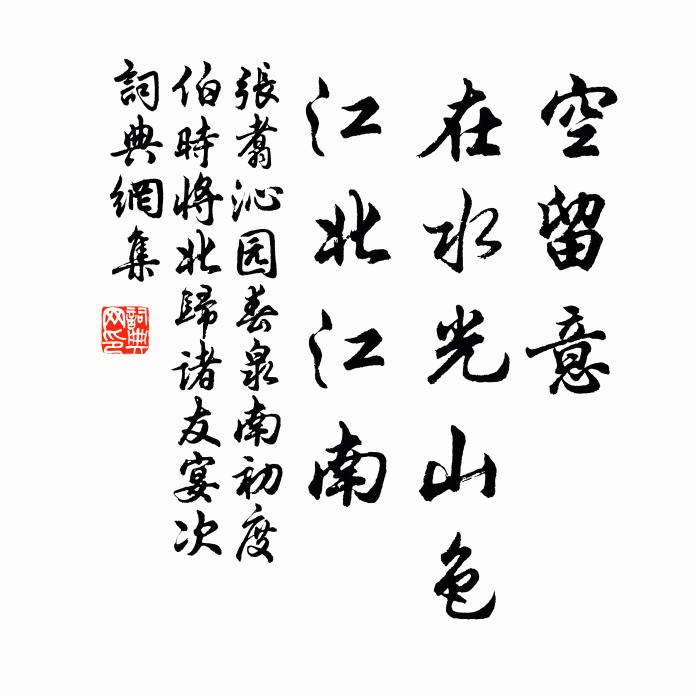 空留意
在水光山色
江北江南
張翥沁园春泉南初度
伯時將北歸諸友宴次
詞典網集
詞典网印